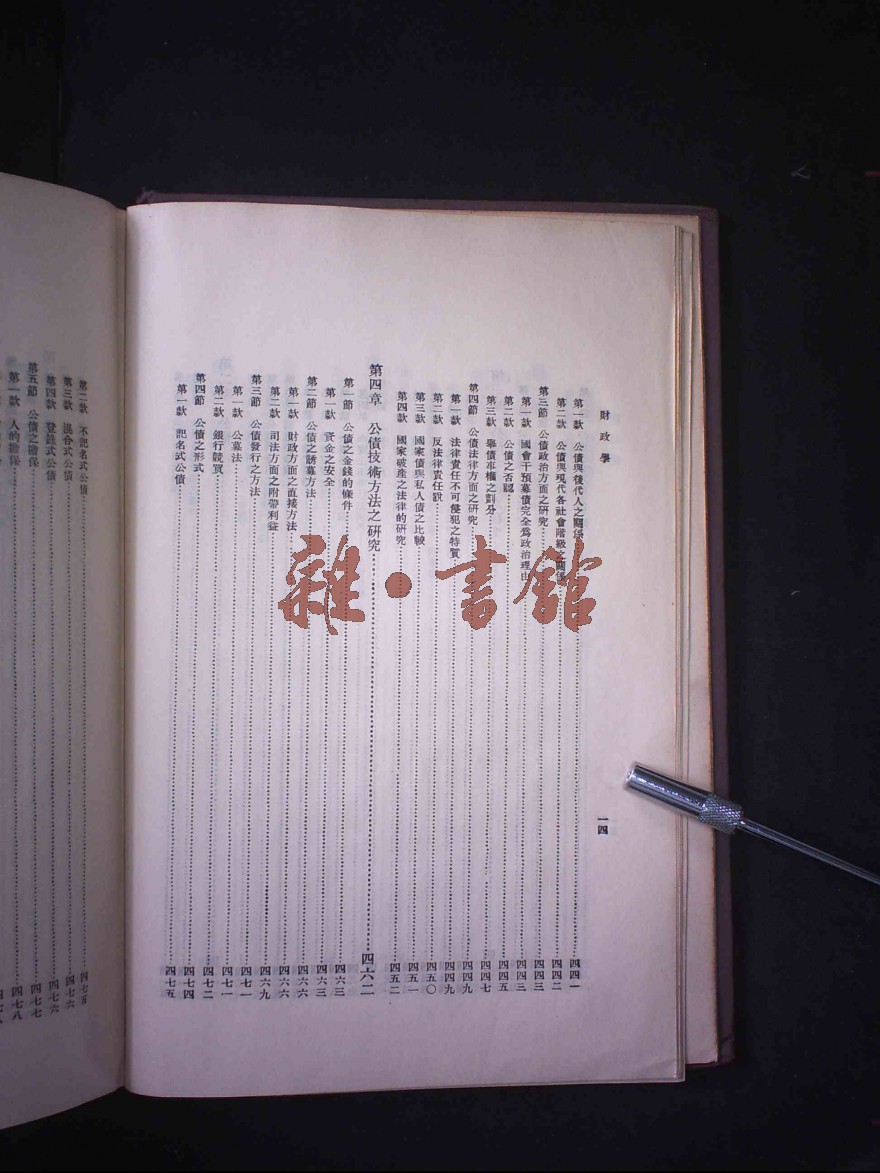 財政學
一四
第一款 公債與後代人之關係 四四一
第二款 公債與現代各社會階級之關係 四四二
第三節 公債政治方面之研究 四四三
第一款 國會干預募債完全爲政治理由 四四三
第二款 公債之否認 四四五
第三款 舉債事權之劃分 四四七
第四節 公債法律方面之研究 四四九
第一款 法律責任不可侵犯之特質 四四九
第二款 反法律責任說 四五〇
第三款 國家債與私人債之比較 四五一
第四款 國家破產之法律的研究 四五二
第四章 公債技術方法之研究 四六二
第一節 公債之金錢的條件 四六三
第一款 資金之安全 四六三
第二節 公債之誘募方法 四六六
第一款 財政方面之直接方法 四六六
第二款 司法方面之附帶利益 四六九
第三節 公債發行之方法 四七一
第一款 公募法 四七一
第二款 銀行競買 四七二
第四節 公債之形式 四七四
第一款 記名式公債 四七五
第二款 不記名式公債 四七五
第三款 混合式公債 四七六
第四款 登錄式公債 四七六
第五節 公債之擔保 四七七
第一款 人的擔保 四七八
雜·書館